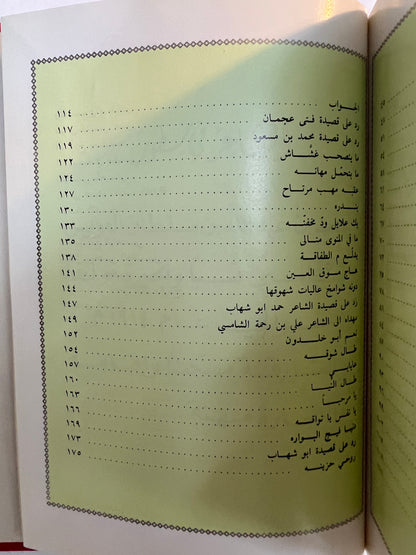 الجواب ١١٤
رد على قصيدة فتى عجمان ١١٧
رد على قصيدة محمد بن مسعود ١١٩
ما يتصحب غشَّاش ١٢٢
ما يتحمّل مهانه ١٢٤
عقبه مهب مرتاح ١٢٧
بندره ١٣٠
بك علايل ودّ مخفنّه ١٣٣
ما في المنوى منالي ١٣٥
يدلّع م الطفاقة ١٣٨
هاج موق العين ١٤١
دونه شوامخ عاليات شهوقها ١٤٤
رد على قصيدة الشاعر حمد ابو شهاب ١٤٧
مهداه الى الشاعر علي بن رحمة الشامسي ١٤٩
نعم أبو خلدون ١٥٢
طال شوقه ١٥٤
عايابي ١٥٧
طال النيا ١٦٠
يا مرحباً ١٦٣
يا نفس يا تواقه ١٦٦
فيج البواره ١٦٩
رد على قصيدة ابو شهاب ١٧٣
روحي حزينه ١٧٥
٤٥